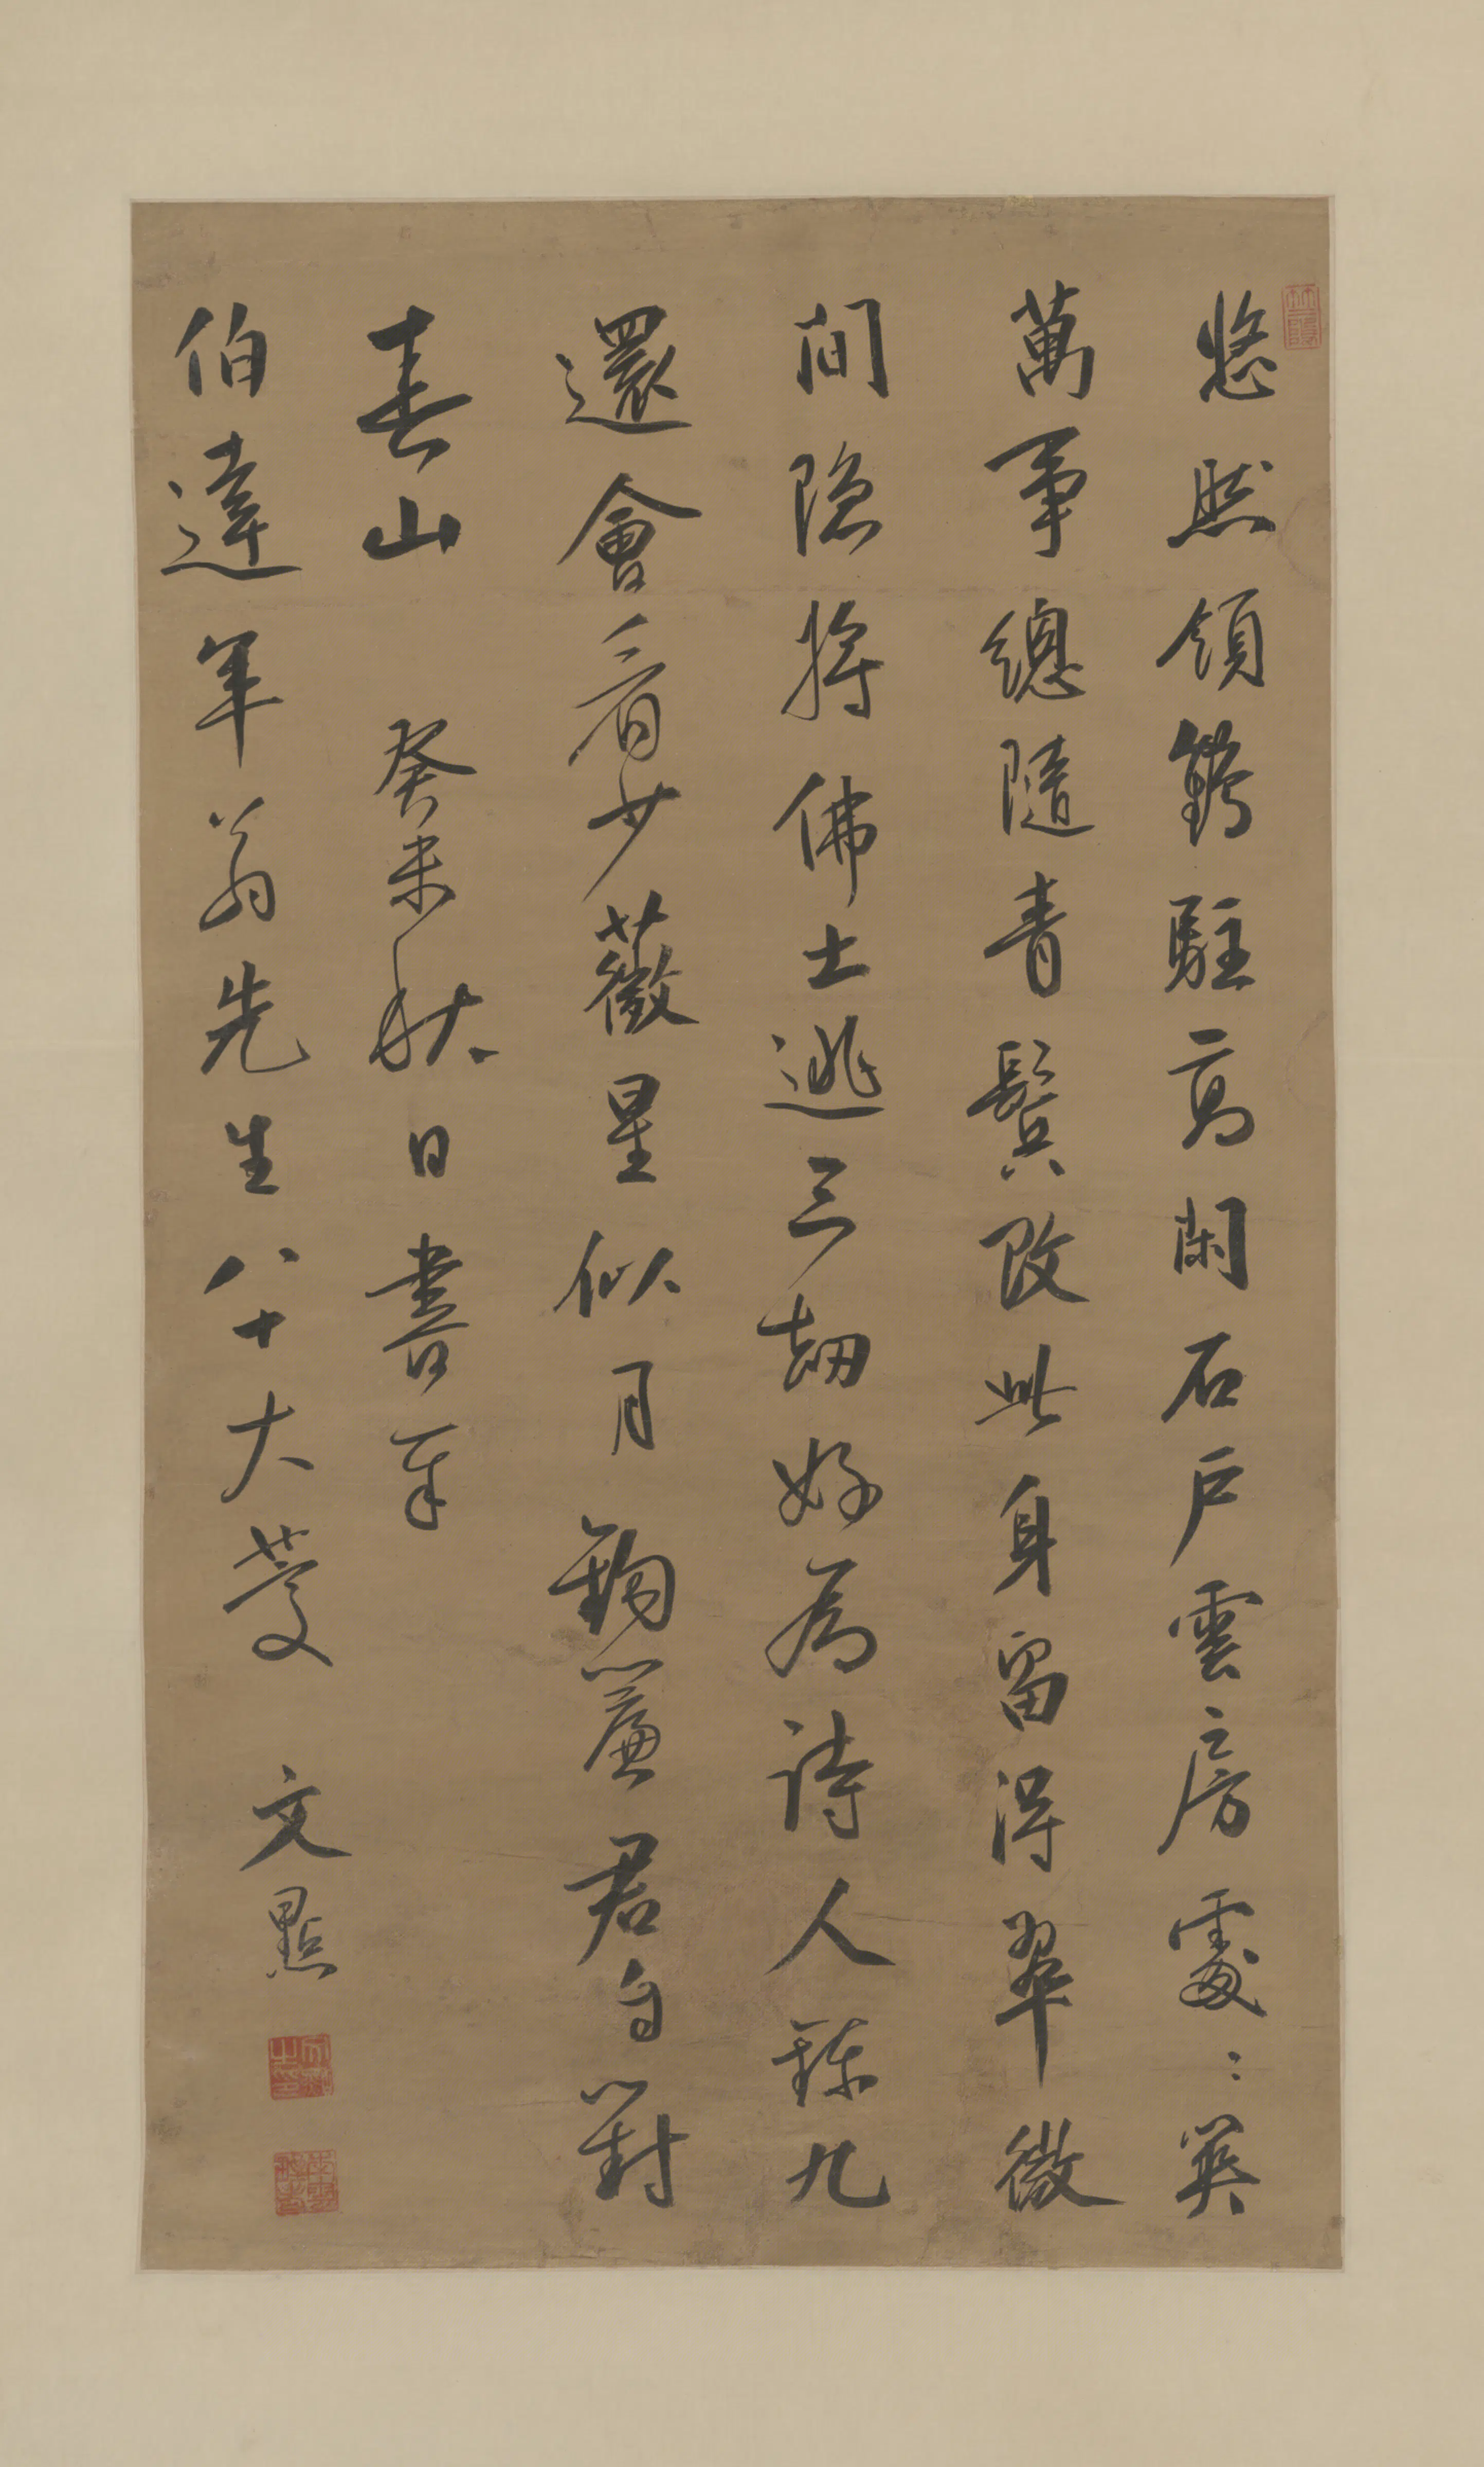 悠然領鶴駐高閑石戶雲房處〻
萬事總隨青鬢改此身留得翠微
間隱將佛土逃三劫好為詩人鍊九
還會看少薇星似月鉤簾君自對
春山 癸未秋日書奉
伯達年翁先生八十大慶 文點
文點之印